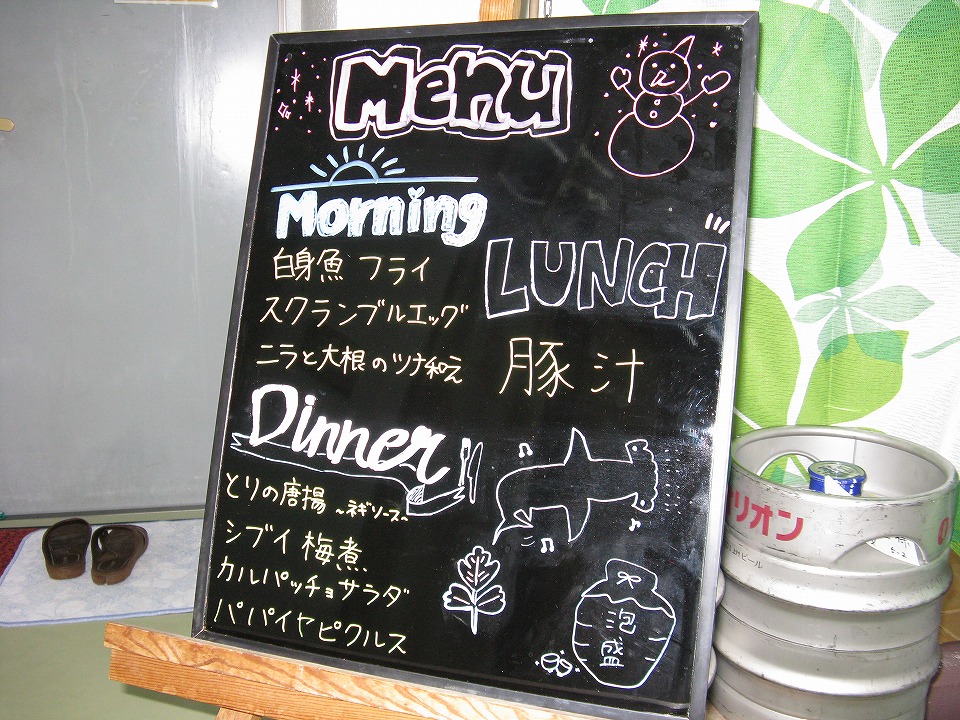 Menu
Morning
白身魚 フライ
スクランブルエッグ
ニラと大根のツナ和え
LUNCH
豚汁
Dinner
とりの唐揚 ~ネギソース~
シブイ梅煮
カルパッチョサラダ
パパイヤピクルス
泡盛
リオン
ビール